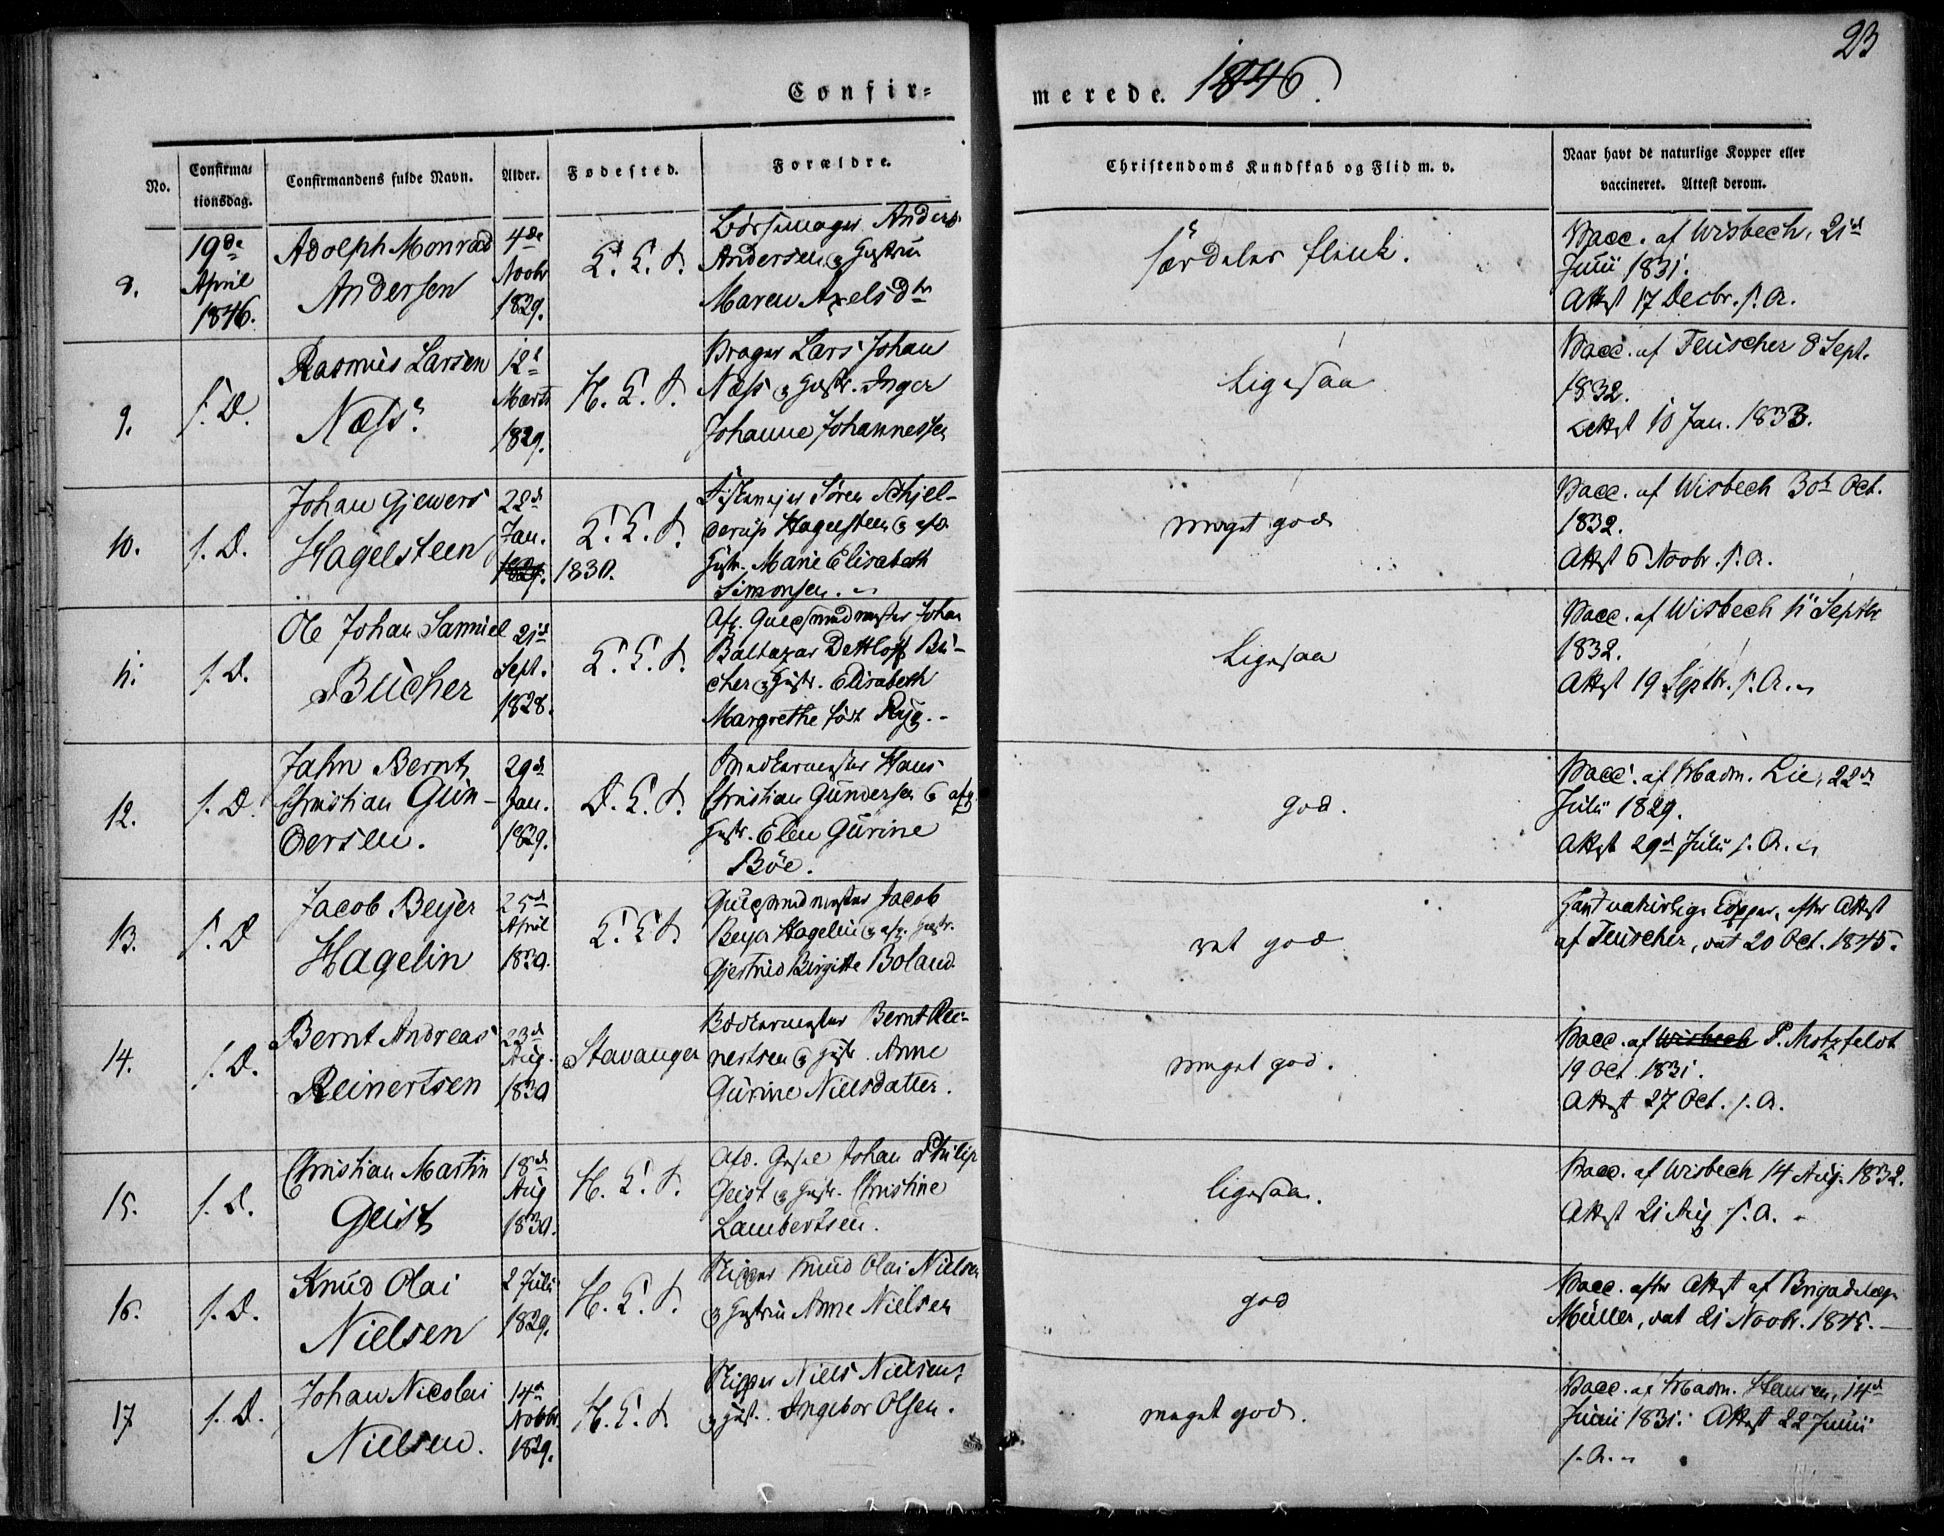 23
Confir-
merede. 1846.
No.
Confirma-
tionsdag.
Confirmandens fulde Navn.
Alder.
Fødested.
Forældre.
Christendoms Kundskab og Flid m. v.
Naar havt de naturlige Kopper eller
vaccineret. Attest derom.
8.
19de
April
1846.
Adolph Monrad
Andersen
4de
Novbr
1829.
Anders
Andersen & Hustru
Maren Axelsdtr
særdeles flink.
Vacc. af Wisbech, 21d
Junii 1831.
Attest 17 Decbr. s. A.
9.
s. D.
Rasmus Larsen
Næss
12t
Marts
1829.
Lars Johan
Næss & Hustr. Inger
Johanne Johannessen
Ligesaa
Vacc. af Teuscher 8 Sept.
1832.
Attest 10 Jan. 1833.
10.
s. D.
Johan Gjewers
Hagelsteen
22d
Jan.
1829. 1830.
Søren Schjel-
derup Hagelsteen & afd.
Hustr. Marie Elisabeth
Simonsen.
meget god
Vacc. af Wisbech 30t Oct.
1832.
Attest 6 Novbr. s. A.
11.
s. D.
Ole Johan Samuel
Bücher
21d
Sept.
1828.
Afg. Guldsmedmester Johan
Baltazar Dettloff Bü-
cher & Hustr. Elisabeth
Margrethe født Ryg.
Ligesaa
Vacc. af Wisbech 11 Septbr
1832.
Attest 19 Septbr. s. A.
12.
s. D.
Jahn Bernt
Christian Gün-
dersen.
29d
Jan.
1829.
Hans
Christian Gündersen & afg.
Hustr. Elen Gürine
Böe.
god.
Vacc. af Madm. Lie, 22de
Julii 1829.
Attest 29d Julii s. A.
13.
s. D
Jacob Beyer
Hagelin
25d
April
1830.
Guldsmedmester Jacob
Beyer Hagelin & afg. Hustr.
Gjertrud Birgitte Boland.
ret god
Havt naturlige Kopper, efter Attest
af Teuscher, dat 20 Oct. 1845.
14.
s. D.
Bernt Andreas
Reinertsen
23d
Aug.
1830
Stavanger
Bødkermester Bernt Rei-
nertsen & Hustr. Anne
Gürine Nielsdatter.
meget god.
Vacc. af Wisbech P. Motzfeldt
19 Oct. 1831.
Attest 27 Oct. s. A.
15.
s. D.
Christian Martin
Geist
18d
Aug
1830.
Johan Philip
Geist & Hustr. Christine
Lambertsen.
ligesaa.
Vacc. af Wisbech 14 Aug. 1832.
Attest 21 Aug s. A.
16.
s. D.
Knud Olai
Nielsen
2 Julii
1829.
Skipper Knud Olai Nielsen
& Hustru Anne Nielsen
god
Vacc. efter Attest af Brigadelæge
Müller, dat 21 Novbr. 1845.
17
s. D.
Johan Nicolai
Nielsen.
14d
Novbr
1829.
Skipper Niels Nielsen
& Hust. Ingebor Olsen.
meget god.
Vacc. af Madm. Hansen, 14d
Junii 1831. Attest 22 Junii
s. A.